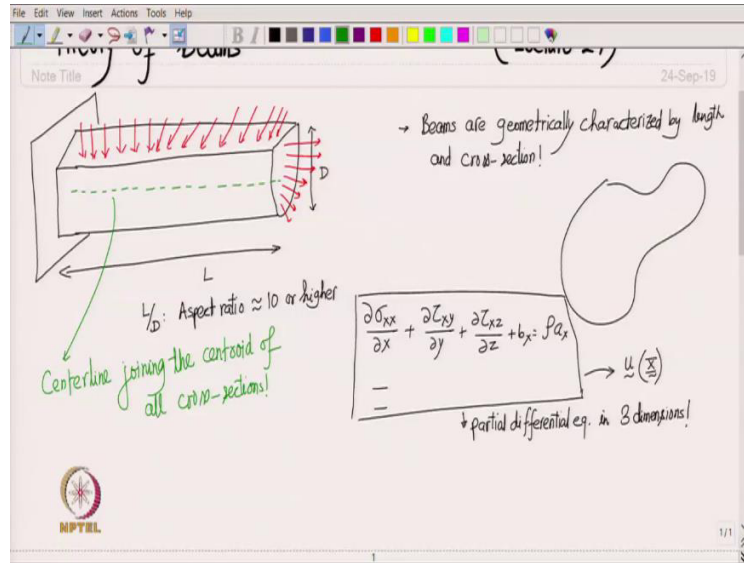 File Edit View Insert Actions Tools Help
B I
Theory of Beams
(Lecture 21)
Note Title
24-Sep-19
→ Beams are geometrically characterized by length
and cross-section!
D
L
L/D: Aspect ratio ≈ 10 or higher
Centerline joining the centroid of
all cross-sections!
∂σxx/∂x + ∂τxy/∂y + ∂τxz/∂z + bx = ρax
→ u(x)
partial differential eq. in 3 dimensions!
NPTEL
1/1
1